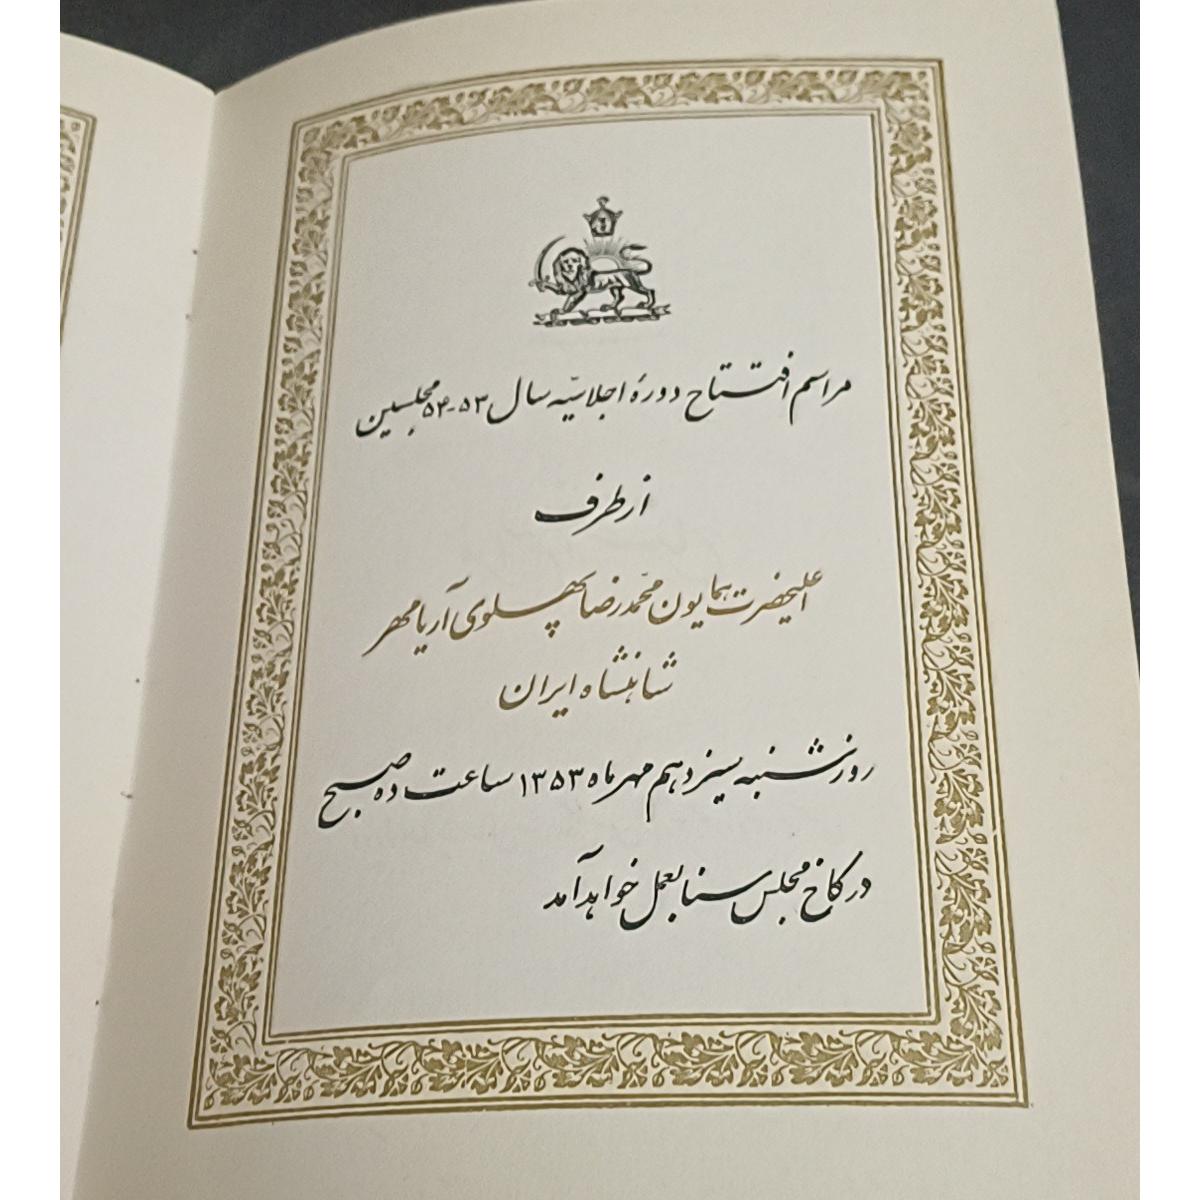 مراسم افتتاح دورهٔ اجلاسیّه سال ۵۳-۵۴ مجلسین
از طرف
اعلیحضرت همایون محمّد رضا پهلوی آریامهر
شاهنشاه ایران
روز شنبه سیزدهم مهرماه ۱۳۵۳ ساعت ده صبح
در کاخ مجلس سنا بعمل خواهد آمد